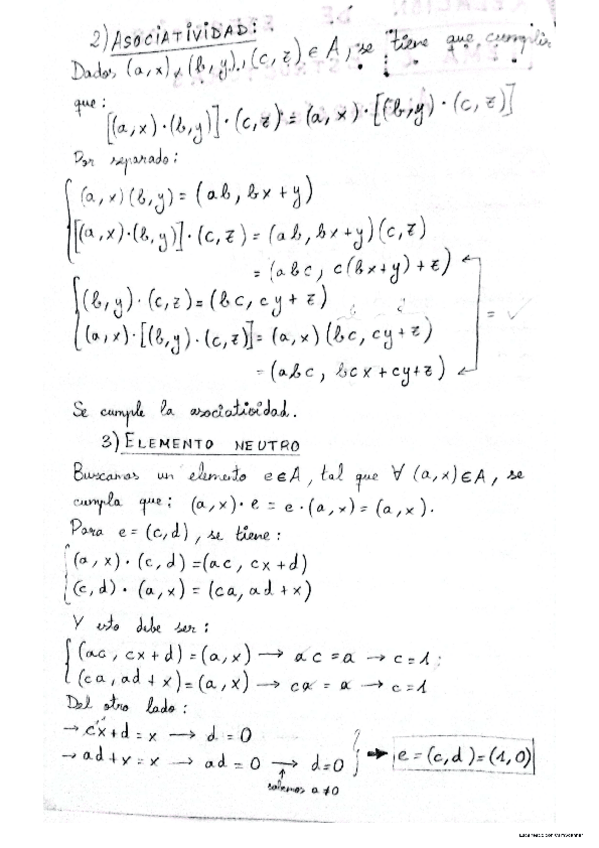 2) ASOCIATIVIDAD:
Dados (a,x), (b,y), (c,z) ∈ A, se tiene que cumplir
que:
[(a,x)·(b,y)]·(c,z) = (a,x)·[(b,y)·(c,z)]
Por separado:
(a,x)(b,y) = (ab, bx+y)
[(a,x)·(b,y)]·(c,z) = (ab, bx+y)(c,z)
= (abc, c(bx+y)+z)
(b,y)·(c,z) = (bc, cy+z)
= ✓
(a,x)·[(b,y)·(c,z)] = (a,x)(bc, cy+z)
= (abc, bcx+cy+z)
Se cumple la asociatividad.
3) ELEMENTO NEUTRO
Buscamos un elemento e∈A, tal que ∀ (a,x)∈A, se
cumpla que: (a,x)·e = e·(a,x) = (a,x).
Para e = (c,d), se tiene:
(a,x)·(c,d) = (ac, cx+d)
(c,d)·(a,x) = (ca, ad+x)
Y esto debe ser:
(ac, cx+d) = (a,x) → ac = a → c = 1;
(ca, ad+x) = (a,x) → ca = a → c = 1
Del otro lado:
→ cx+d = x → d = 0
→ ad+x = x → ad = 0 → d = 0 → e = (c,d) = (1,0)
sabemos a≠0